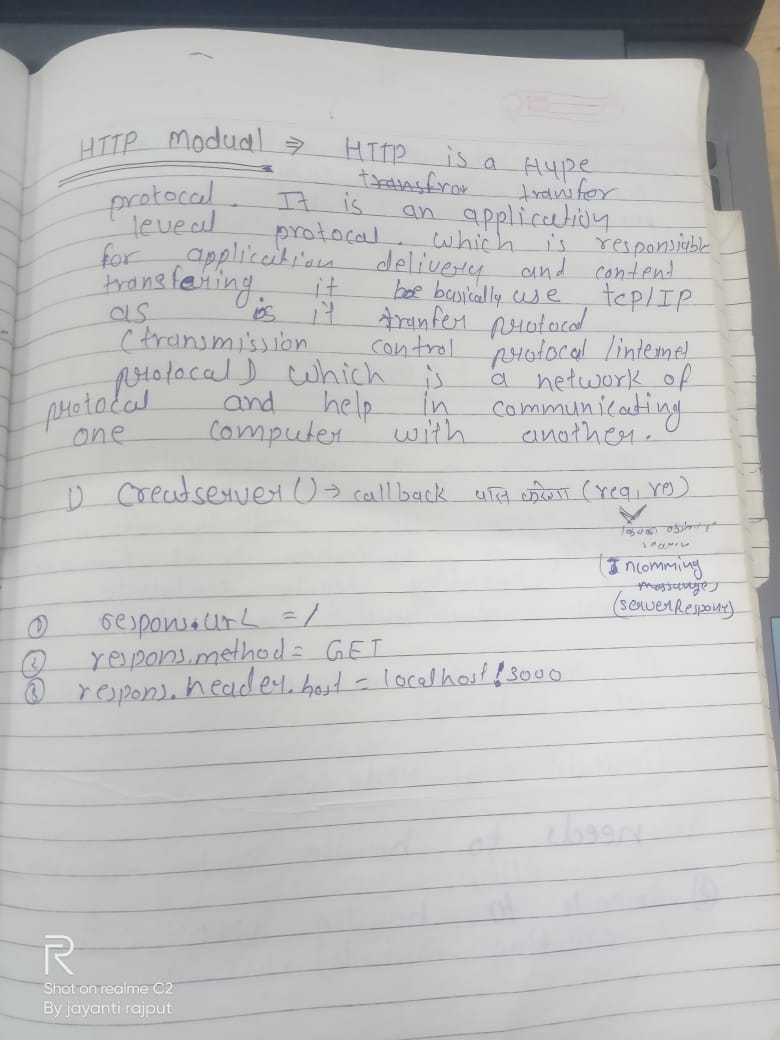 HTTP Modual ⇒ HTTP is a Hype
transfror transfor
protocal. It is an application
leveal protocal. which is responsiable
for application delivery and content
transfering it boe basically use tcp/IP
as is it tranfer protocal
(transmission control protocal /internet
protocal) which is a network of
protocal and help in communicating
one computer with another.
1) Creatserver() → callback (req, res)
(Incomming
messange)
(serverRespons)
① respons.urL = /
② respons.method = GET
③ respons.header.host = localhost:3000
R
Shot on realme C2
By jayanti rajput